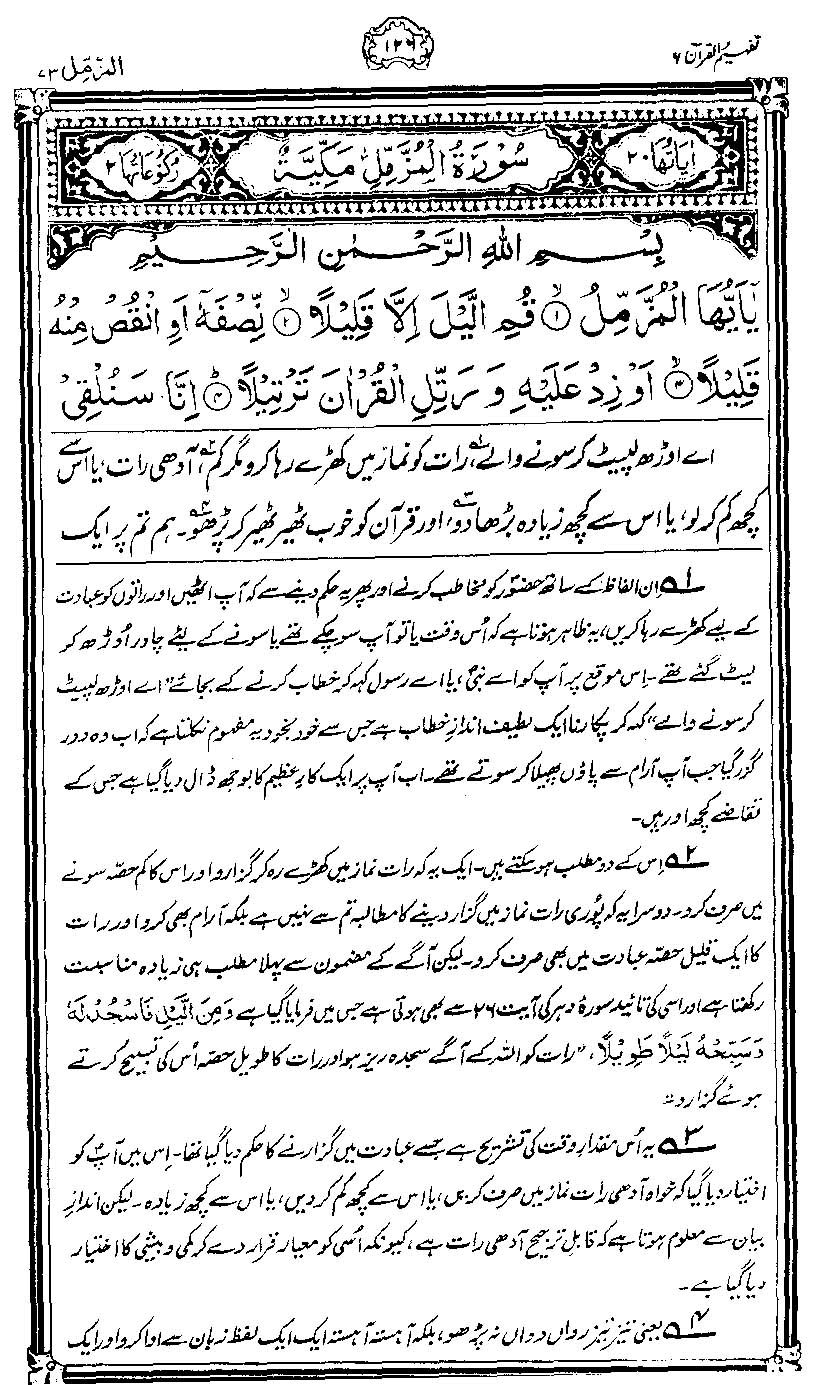 تفہیم القرآن ۶
۱۲۶
المزمل ۷۳
اٰیَاتُهَا ۲۰
سُوْرَةُ الْمُزَّمِّلِ مَکِّیَّةٌ
رُکُوْعَاتُهَا ۲
بِسْمِ اللهِ الرَّحْمٰنِ الرَّحِیْمِ
یٰۤاَیُّهَا الْمُزَّمِّلُ ۙ﴿۱﴾ قُمِ الَّیْلَ اِلَّا قَلِیْلًا ۙ﴿۲﴾ نِّصْفَهٗۤ اَوِ انْقُصْ مِنْهُ
قَلِیْلًا ۙ﴿۳﴾ اَوْ زِدْ عَلَیْهِ وَ رَتِّلِ الْقُرْاٰنَ تَرْتِیْلًا ؕ﴿۴﴾ اِنَّا سَنُلْقِیْ
اے اوڑھ لپیٹ کر سونے والے، رات کو نماز میں کھڑے رہا کرو مگر کم، آدھی رات، یا اس سے
کچھ کم کر لو، یا اس سے کچھ زیادہ بڑھا دو، اور قرآن کو خوب ٹھیر ٹھیر کر پڑھو۔ ہم تم پر ایک
۱؎ ان الفاظ کے ساتھ حضورؐ کو مخاطب کرنے اور پھر یہ حکم دینے سے کہ آپ اٹھیں اور راتوں کو عبادت
کے لیے کھڑے رہا کریں، یہ ظاہر ہوتا ہے کہ اُس وقت یا تو آپ سو چکے تھے یا سونے کے لیے چادر اُوڑھ کر
لیٹ گئے تھے۔ اِس موقع پر آپ کو اے نبیؐ، یا اے رسول کہہ کر خطاب کرنے کے بجائے ”اے اوڑھ لپیٹ
کر سونے والے“ کہہ کر پکارنا ایک لطیف اندازِ خطاب ہے جس سے خود بخود یہ مفہوم نکلتا ہے کہ اب وہ دور
گزر گیا جب آپ آرام سے پاؤں پھیلا کر سوتے تھے۔ اب آپ پر ایک کارِ عظیم کا بوجھ ڈال دیا گیا ہے جس کے
تقاضے کچھ اور ہیں۔
۲؎ اِس کے دو مطلب ہو سکتے ہیں۔ ایک یہ کہ رات نماز میں کھڑے رہ کر گزارو اور اس کا کم حصّہ سونے
میں صرف کرو۔ دوسرا یہ کہ پُوری رات نماز میں گزار دینے کا مطالبہ تم سے نہیں ہے بلکہ آرام بھی کرو اور رات
کا ایک قلیل حصّہ عبادت میں بھی صرف کرو۔ لیکن آگے کے مضمون سے پہلا مطلب ہی زیادہ مناسبت
رکھتا ہے اور اسی کی تائید سورۂ دہر کی آیت ۲۶ سے بھی ہوتی ہے جس میں فرمایا گیا ہے وَمِنَ الَّیْلِ فَاسْجُدْ لَهٗ
وَسَبِّحْهُ لَیْلًا طَوِیْلًا، ”رات کو اللہ کے آگے سجدہ ریز ہو اور رات کا طویل حصّہ اُس کی تسبیح کرتے
ہوئے گزارو“
۳؎ یہ اُس مقدارِ وقت کی تشریح ہے جسے عبادت میں گزارنے کا حکم دیا گیا تھا۔ اِس میں آپؐ کو
اختیار دیا گیا کہ خواہ آدھی رات نماز میں صرف کریں، یا اس سے کچھ کم کر دیں، یا اس سے کچھ زیادہ۔ لیکن اندازِ
بیان سے معلوم ہوتا ہے کہ قابلِ ترجیح آدھی رات ہے، کیونکہ اُسی کو معیار قرار دے کر کمی و بیشی کا اختیار
دیا گیا ہے۔
۴؎ یعنی تیز تیز رواں دواں نہ پڑھو، بلکہ آہستہ آہستہ ایک ایک لفظ زبان سے ادا کرو اور ایک